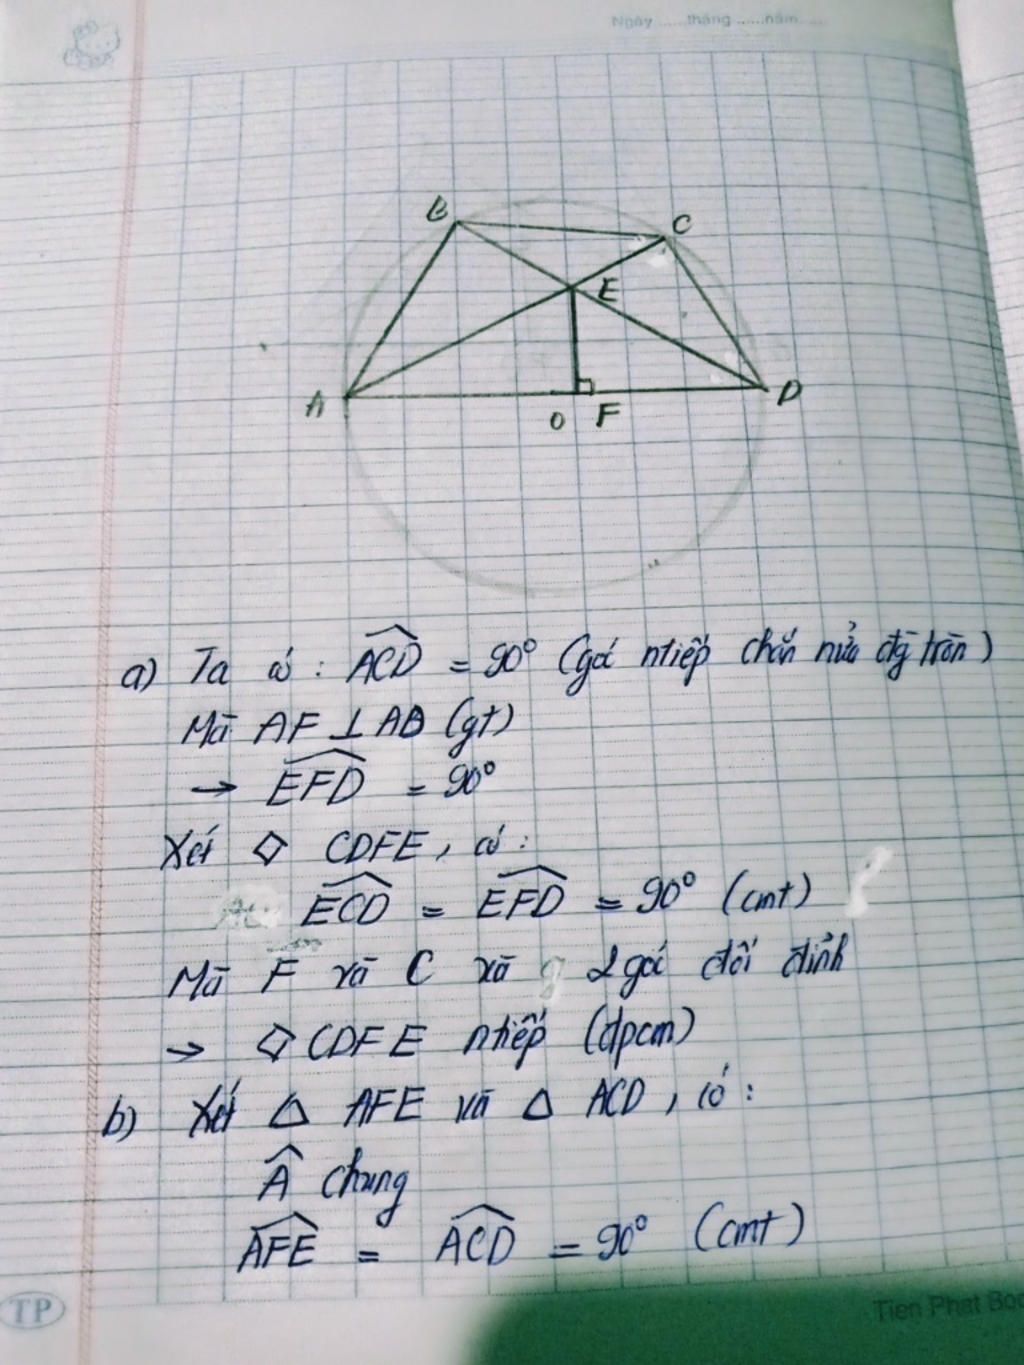 Ngày ......tháng ......năm......
B
C
E
A
O F
D
a) Ta có : ACD = 90° (góc ntiếp chắn nửa đg tròn)
Mà AF ⊥ AD (gt)
→ EFD = 90°
Xét ◇ CDFE, có :
ECD = EFD = 90° (cmt)
Mà F và C và 2 góc đối đỉnh
→ ◇ CDFE ntiếp (đpcm)
b) Xét △ AFE và △ ACD, có :
A chung
AFE = ACD = 90° (cmt)
TP
Tien Phat